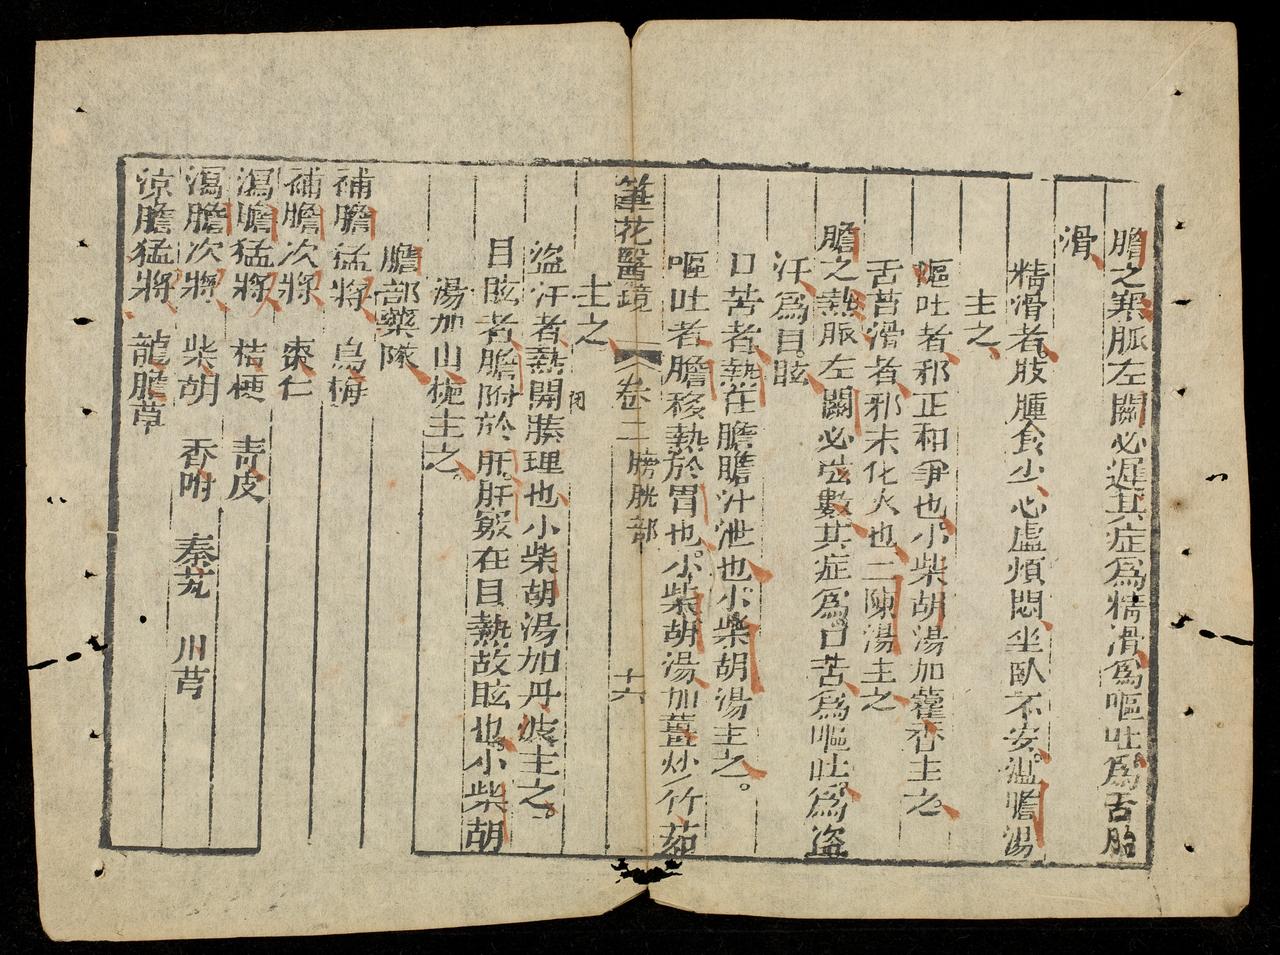 膽之寒脈左關必遲其症爲精滑爲嘔吐爲舌胎
滑
精滑者肢腫食少心虛煩悶坐臥不安溫膽湯
主之
嘔吐者邪正相爭也小柴胡湯加藿香主之
舌苔滑者邪未化火也二陳湯主之
膽之熱脈左關必弦數其症爲口苦爲嘔吐爲盜
汗爲目眩
口苦者熱在膽膽汁泄也小柴胡湯主之
嘔吐者膽移熱於胃也小柴胡湯加薑炒竹茹
筆花醫鏡 卷二 膀胱部 十六
主之
盜汗者熱開腠理也小柴胡湯加丹皮主之
閉
目眩者膽附於肝肝竅在目熱故眩也小柴胡
湯加山梔主之
膽部藥隊
補膽猛將 烏梅
補膽次將 棗仁
瀉膽猛將 桔梗 青皮
瀉膽次將 柴胡 香附 秦艽 川芎
涼膽猛將 龍膽草